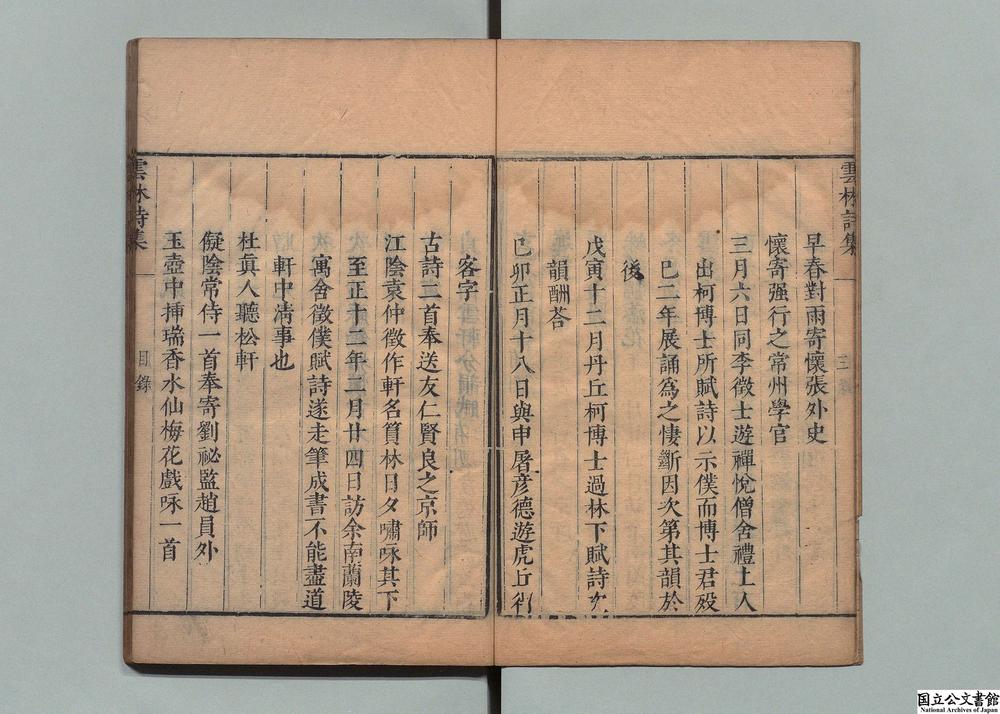 雲林詩集
三
早春對雨寄懷張外史
懷寄强行之常州學官
三月六日同李徵士遊禪悅僧舍禮上人
出柯博士所賦詩以示僕而博士君殁
巳二年展誦為之悽斷因次第其韻於
後
戊寅十二月丹丘柯博士過林下賦詩次
韻酬荅
己卯正月十八日與申屠彦德遊虎丘得
客字
古詩二首奉送友仁賢良之京師
江陰袁仲徵作軒名篔林日夕嘯咏其下
至正十二年二月廿四日訪余南蘭陵
寓舍徵僕賦詩遂走筆成書不能盡道
軒中淸事也
杜眞人聽松軒
儗陰常侍一首奉寄劉祕監趙員外
玉壺中揷瑞香水仙梅花戲咏一首
雲林詩集
目錄
国立公文書館
National Archives of Japan